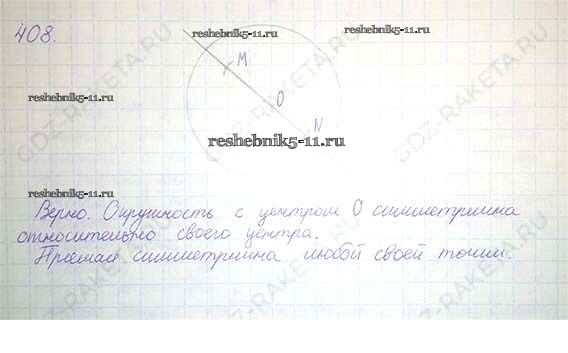 408.
reshebnik5-11.ru
reshebnik5-11.ru
M
reshebnik5-11.ru
O
N
reshebnik5-11.ru
reshebnik5-11.ru
Верно. Окружность с центром O симметрична
относительно своего центра.
Прямая симметрична любой своей точки.
GDZ-RAKETA.RU
GDZ-RAKETA.RU
GDZ-RAKETA.RU
GDZ-RAKETA.RU